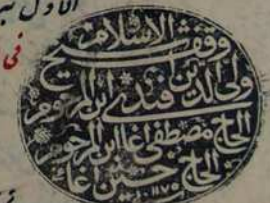 الاول
فى
وقف شيخ الاسلام
ولى الدين افندى ابن المرحوم
الحاج مصطفى اغا ابن المرحوم
الحاج حسين اغا